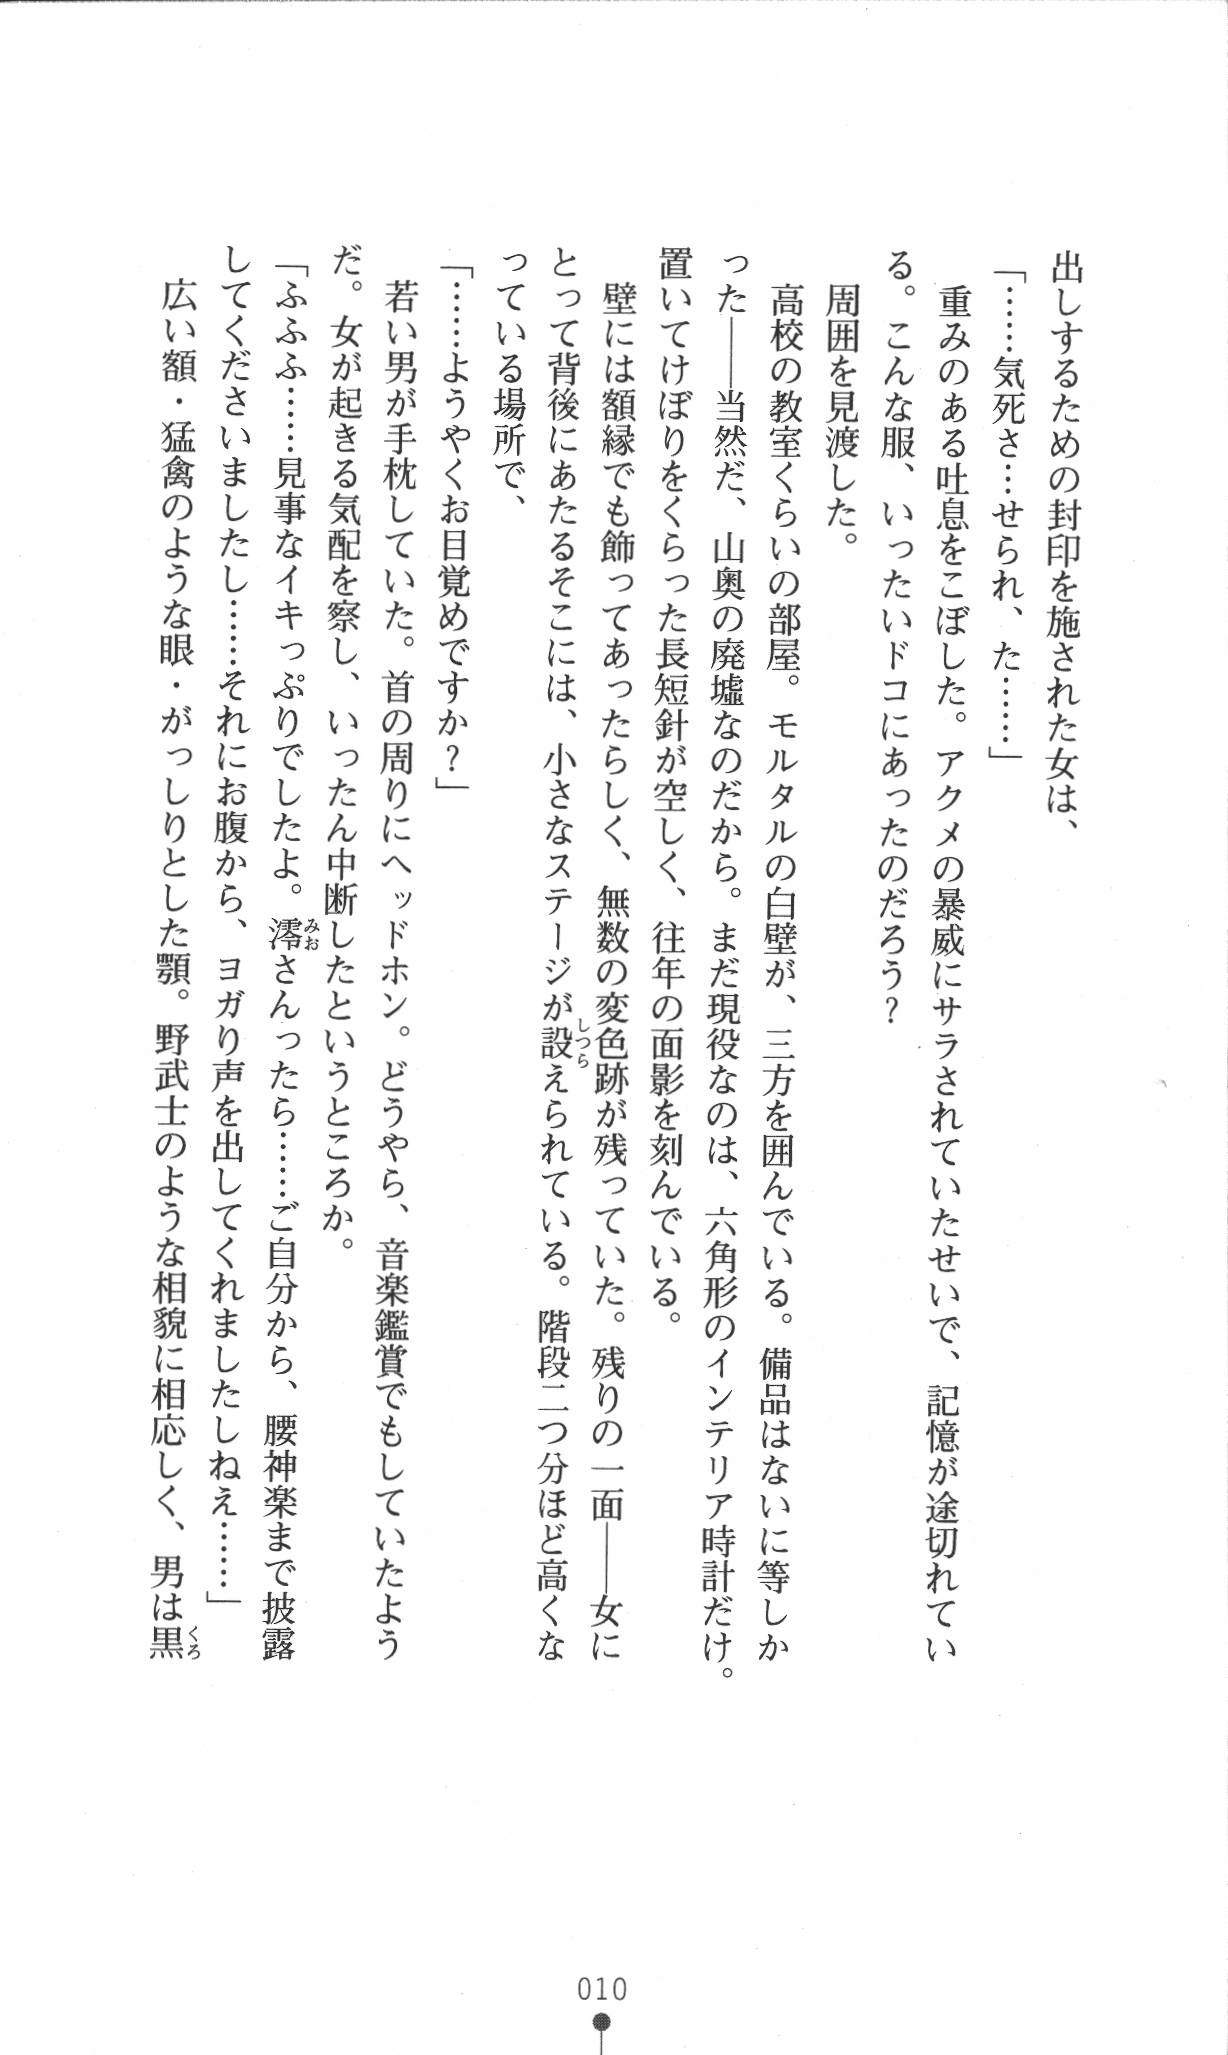 出しするための封印を施された女は、
「……気死さ…せられ、た……」
重みのある吐息をこぼした。アクメの暴威にサラされていたせいで、記憶が途切れてい
る。こんな服、いったいドコにあったのだろう？
周囲を見渡した。
高校の教室くらいの部屋。モルタルの白壁が、三方を囲んでいる。備品はないに等しか
った――当然だ、山奥の廃墟なのだから。まだ現役なのは、六角形のインテリア時計だけ。
置いてけぼりをくらった長短針が空しく、往年の面影を刻んでいる。
壁には額縁でも飾ってあったらしく、無数の変色跡が残っていた。残りの一面――女に
とって背後にあたるそこには、小さなステージが設えられている。階段二つ分ほど高くな
しつら
っている場所で、
「……ようやくお目覚めですか？」
若い男が手枕していた。首の周りにヘッドホン。どうやら、音楽鑑賞でもしていたよう
だ。女が起きる気配を察し、いったん中断したというところか。
「ふふふ……見事なイキっぷりでしたよ。澪さんったら……ご自分から、腰神楽まで披露
みお
してくださいましたし……それにお腹から、ヨガり声を出してくれましたしねえ……」
広い額・猛禽のような眼・がっしりとした顎。野武士のような相貌に相応しく、男は黒
くろ
010